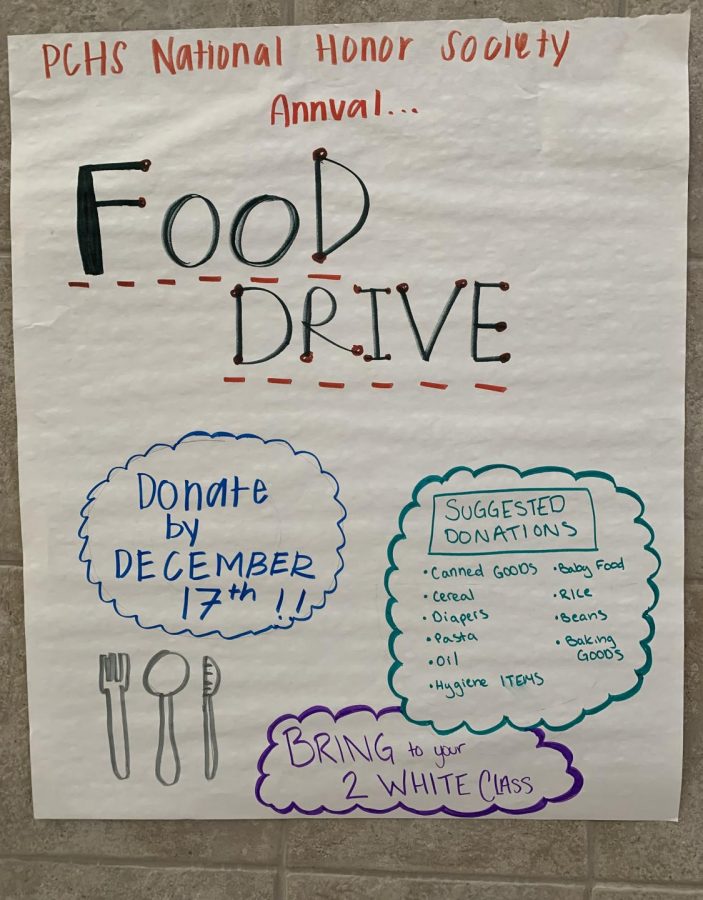 PCHS National Honor Society
Annual...
FOOD
DRIVE
Donate
by
DECEMBER
17th !!
SUGGESTED
DONATIONS
• Canned GOODS
• Cereal
• Diapers
• Pasta
• Oil
• Hygiene ITEMS
• Baby Food
• Rice
• Beans
• Baking
GOODS
BRING to your
2 WHITE CLASS